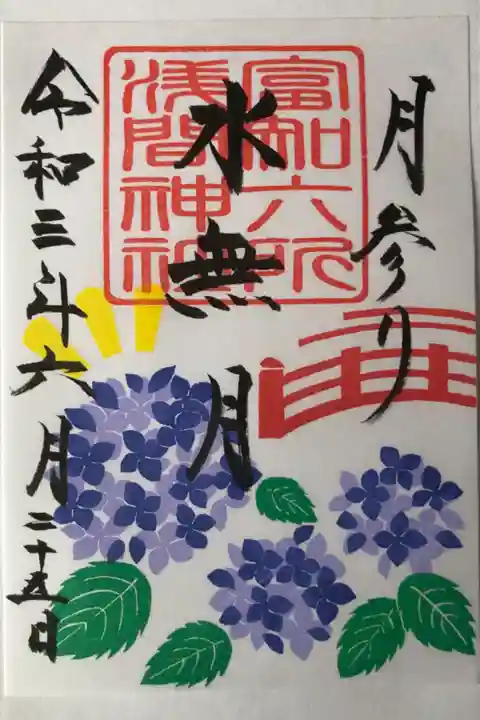 月参り
富知六所
浅間神社
水無月
令和三年六月二十五日